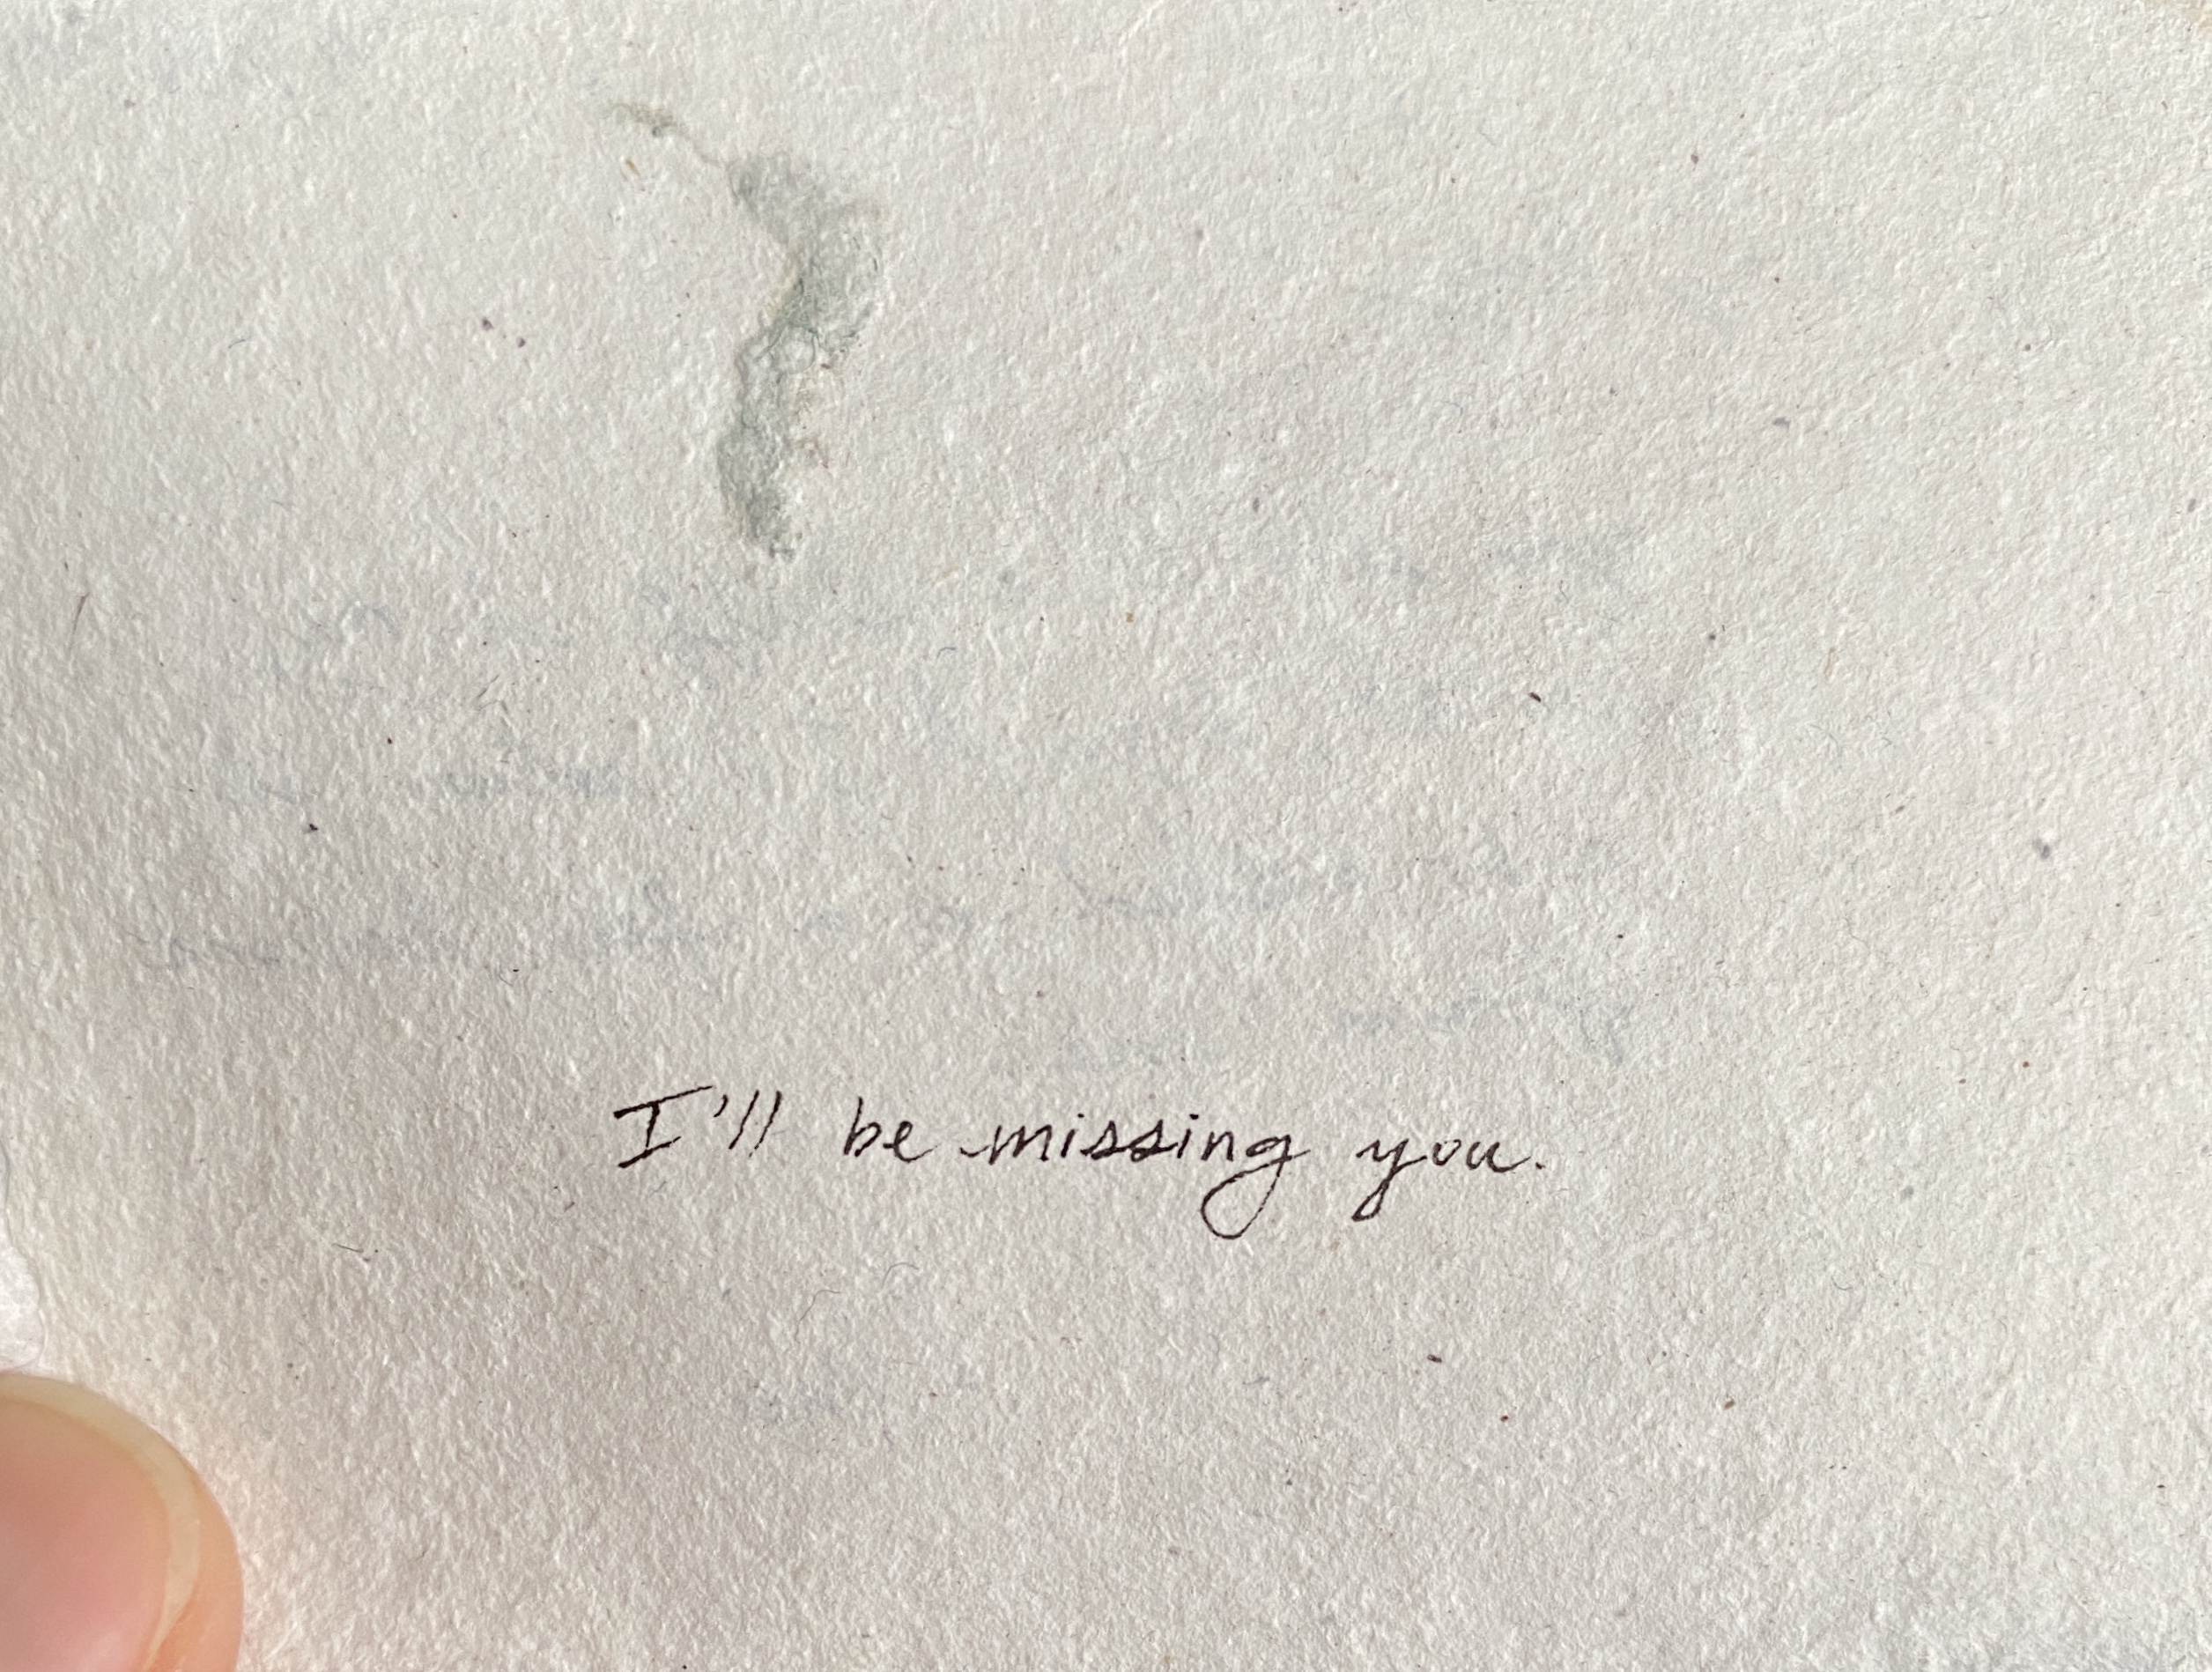 I'll be missing you.